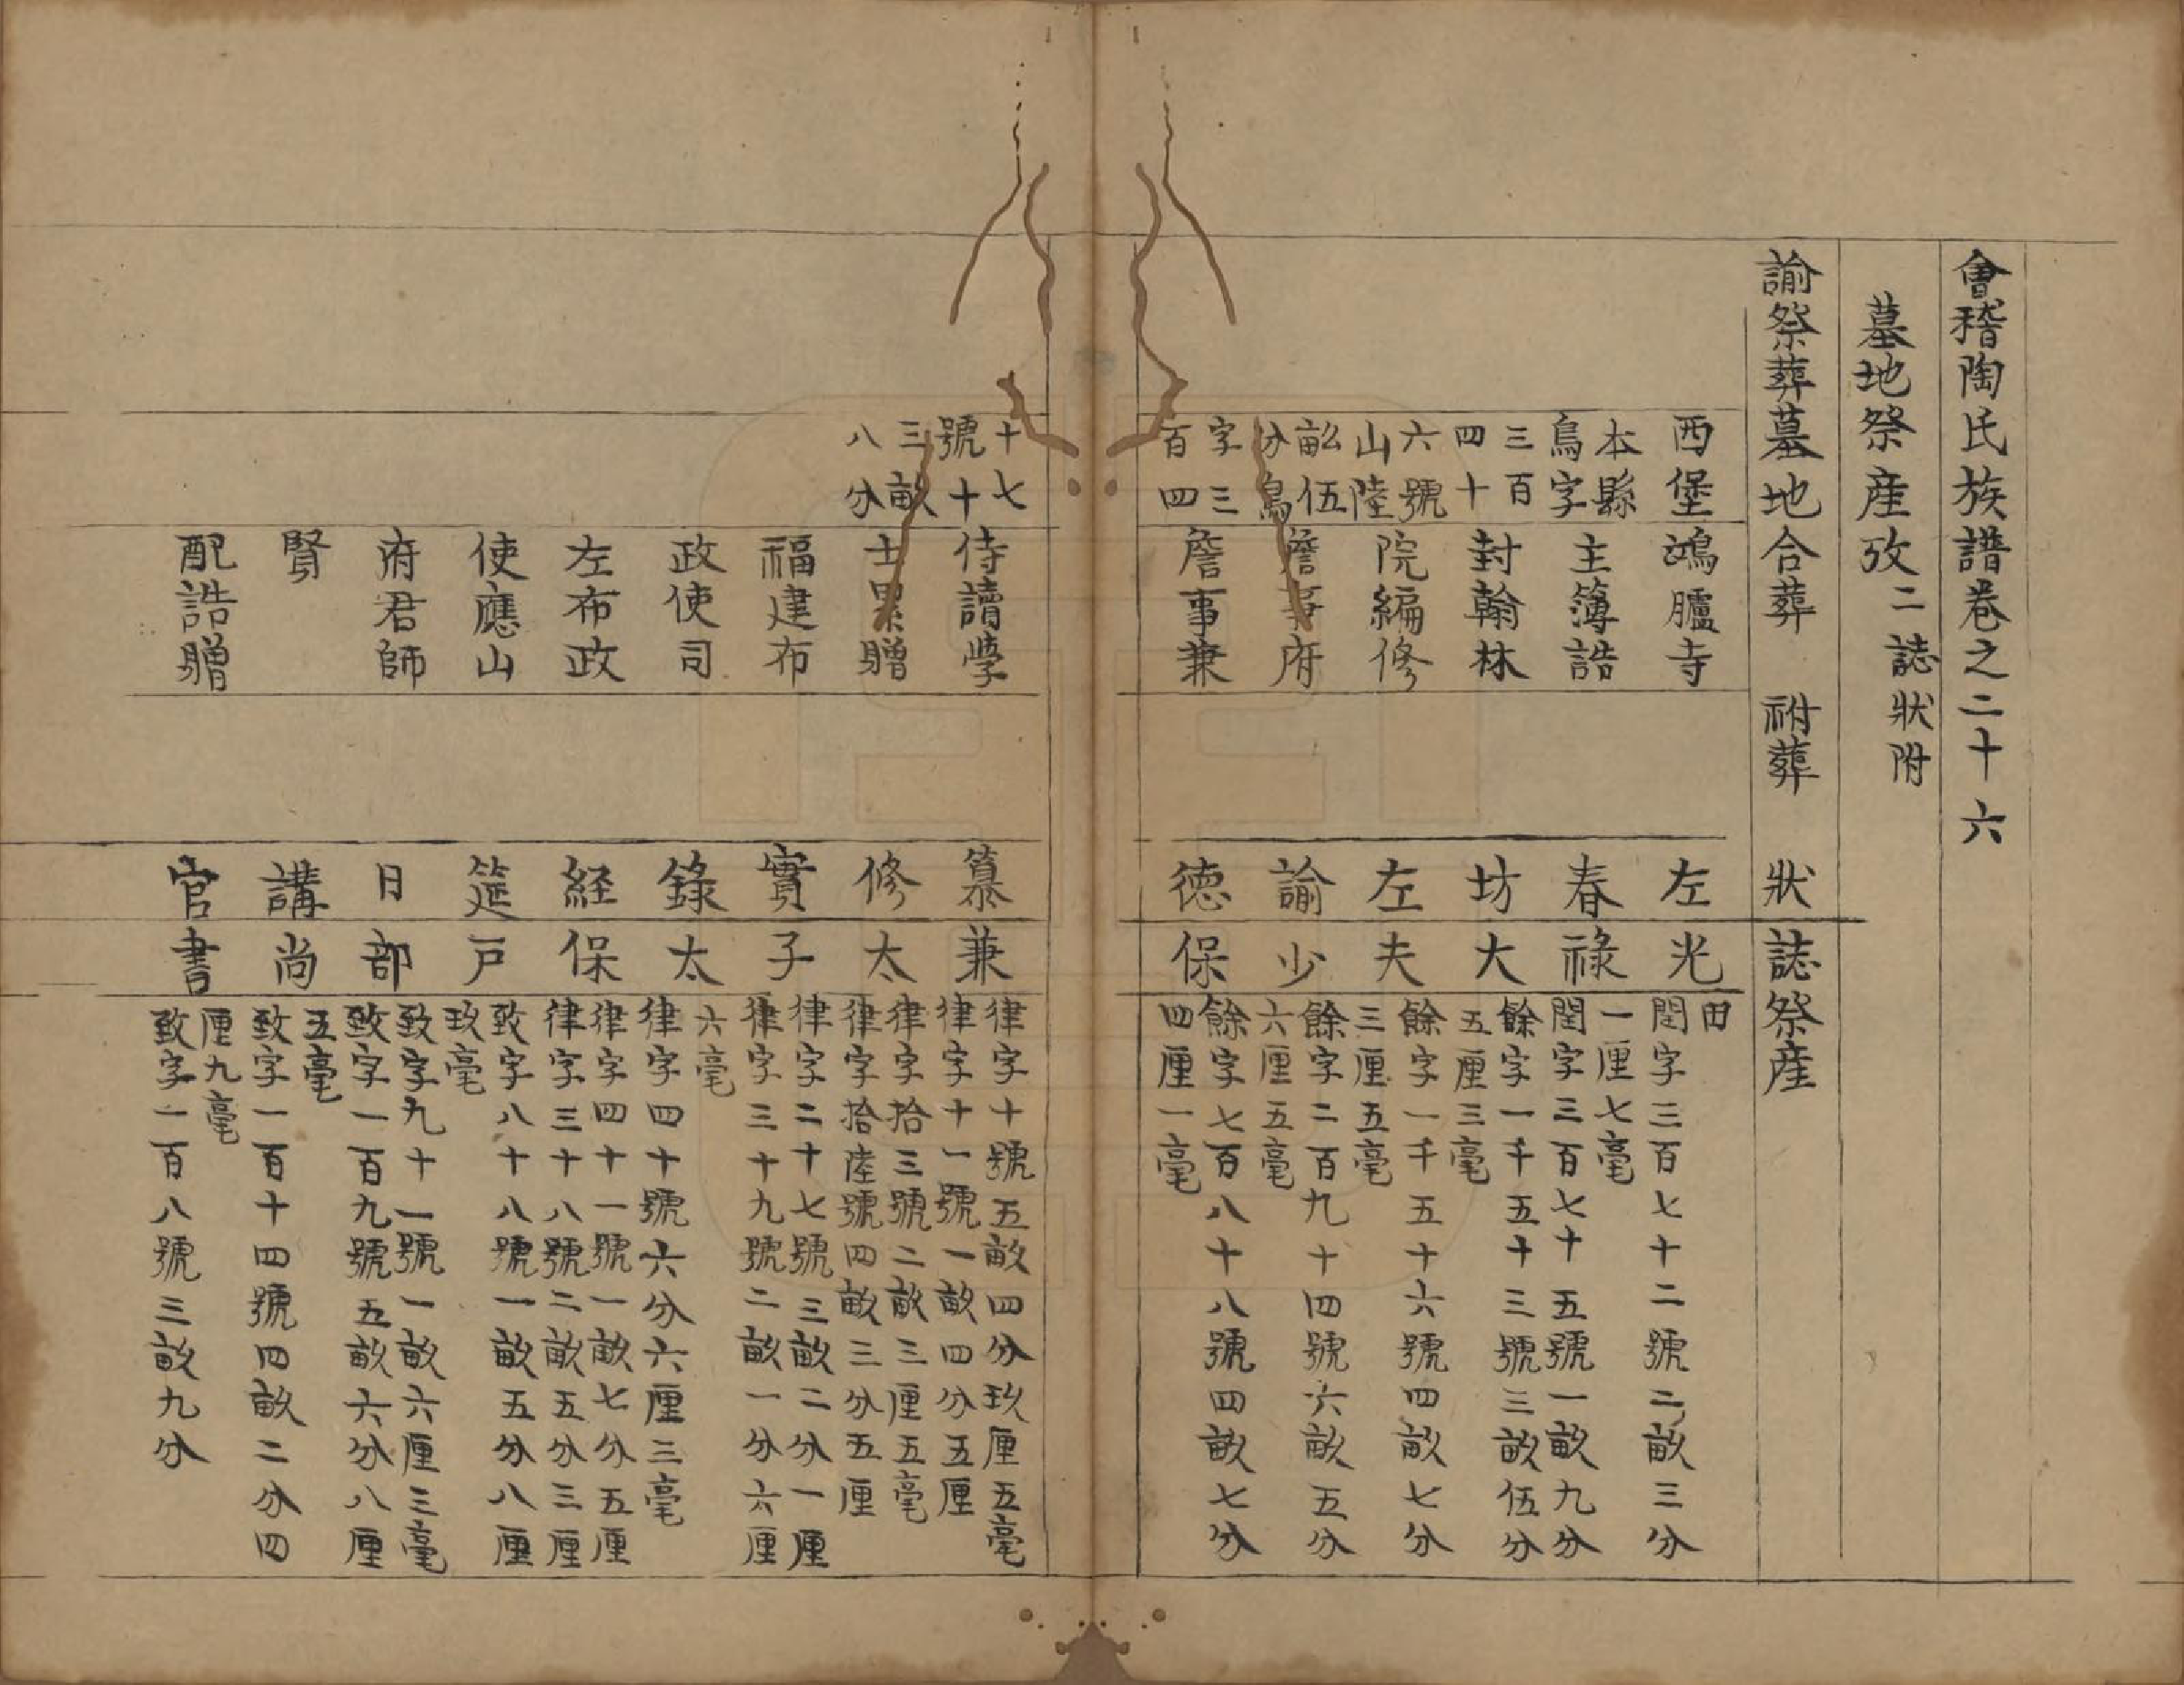 會稽陶氏族譜卷之二十六
墓地祭産攷二誌狀附
諭祭葬墓地合葬 祔葬 狀誌祭産
西堡
本縣
鳥字
三百
四十
六號
山陸
畝伍
分鳥
字三
百四
十七
號十
三畝
八分
鴻臚寺
主簿誥
封翰林
院編修
詹事府
詹事兼
侍讀學
士累贈
福建布
政使司
左布政
使應山
府君師
賢
配誥贈
左春坊左諭德纂修實錄経筵日講官
光祿大夫少保兼太子太保戸部尚書
田
閏字三百七十二號二畝三分
一厘七毫
閏字三百七十五號一畝九分
餘字一千五十三號三畝伍分
五厘三毫
餘字一千五十六號四畝七分
三厘五毫
餘字二百九十四號六畝五分
六厘五毫
餘字七百八十八號四畝七分
四厘一毫
律字十號五畝四分玖厘五毫
律字十一號一畝四分五厘
律字拾三號二畝三厘五毫
律字拾陸號四畝三分五厘
律字二十七號三畝二分一厘
律字三十九號二畝一分六厘
六毫
律字四十號六分六厘三毫
律字四十一號一畝七分五厘
律字三十八號二畝五分三厘
致字八十八號一畝五分八厘
玖毫
致字九十一號一畝六厘三毫
致字一百九號五畝六分八厘
五毫
致字一百十四號四畝二分四
厘九毫
致字一百八號三畝九分